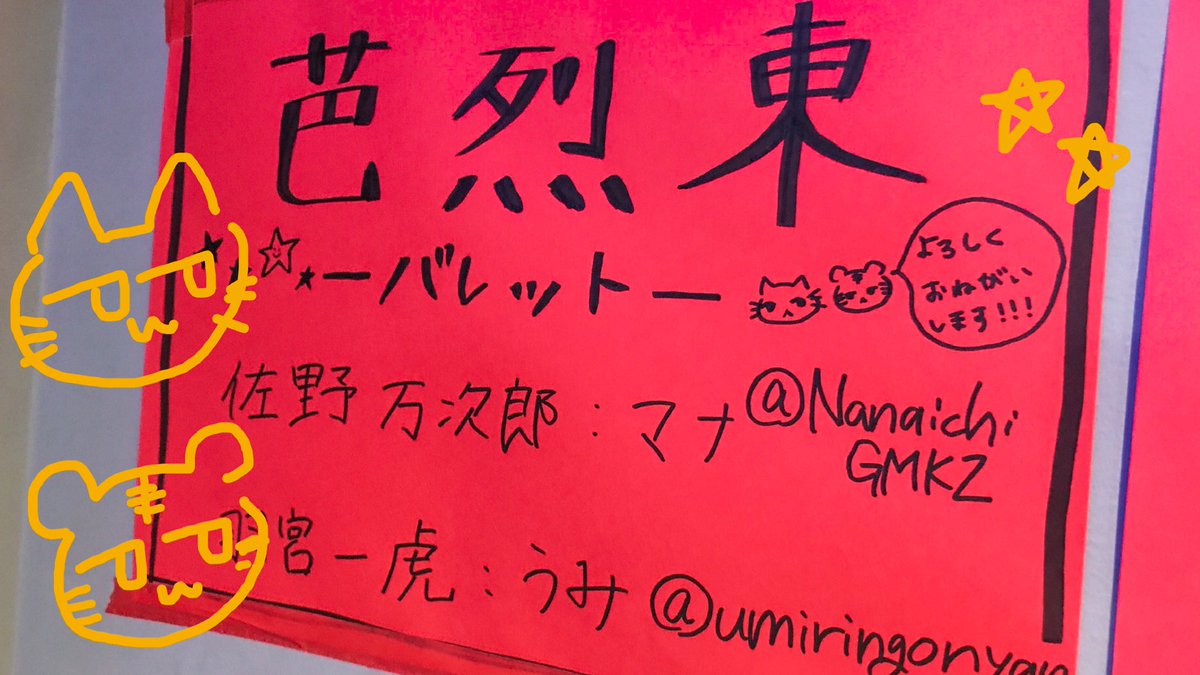 芭烈東
ーバレットー
よろしく
おねがい
します!!!
佐野万次郎:マナ @Nanaichi
GMKZ
羽宮一虎:うみ @umiringonyan